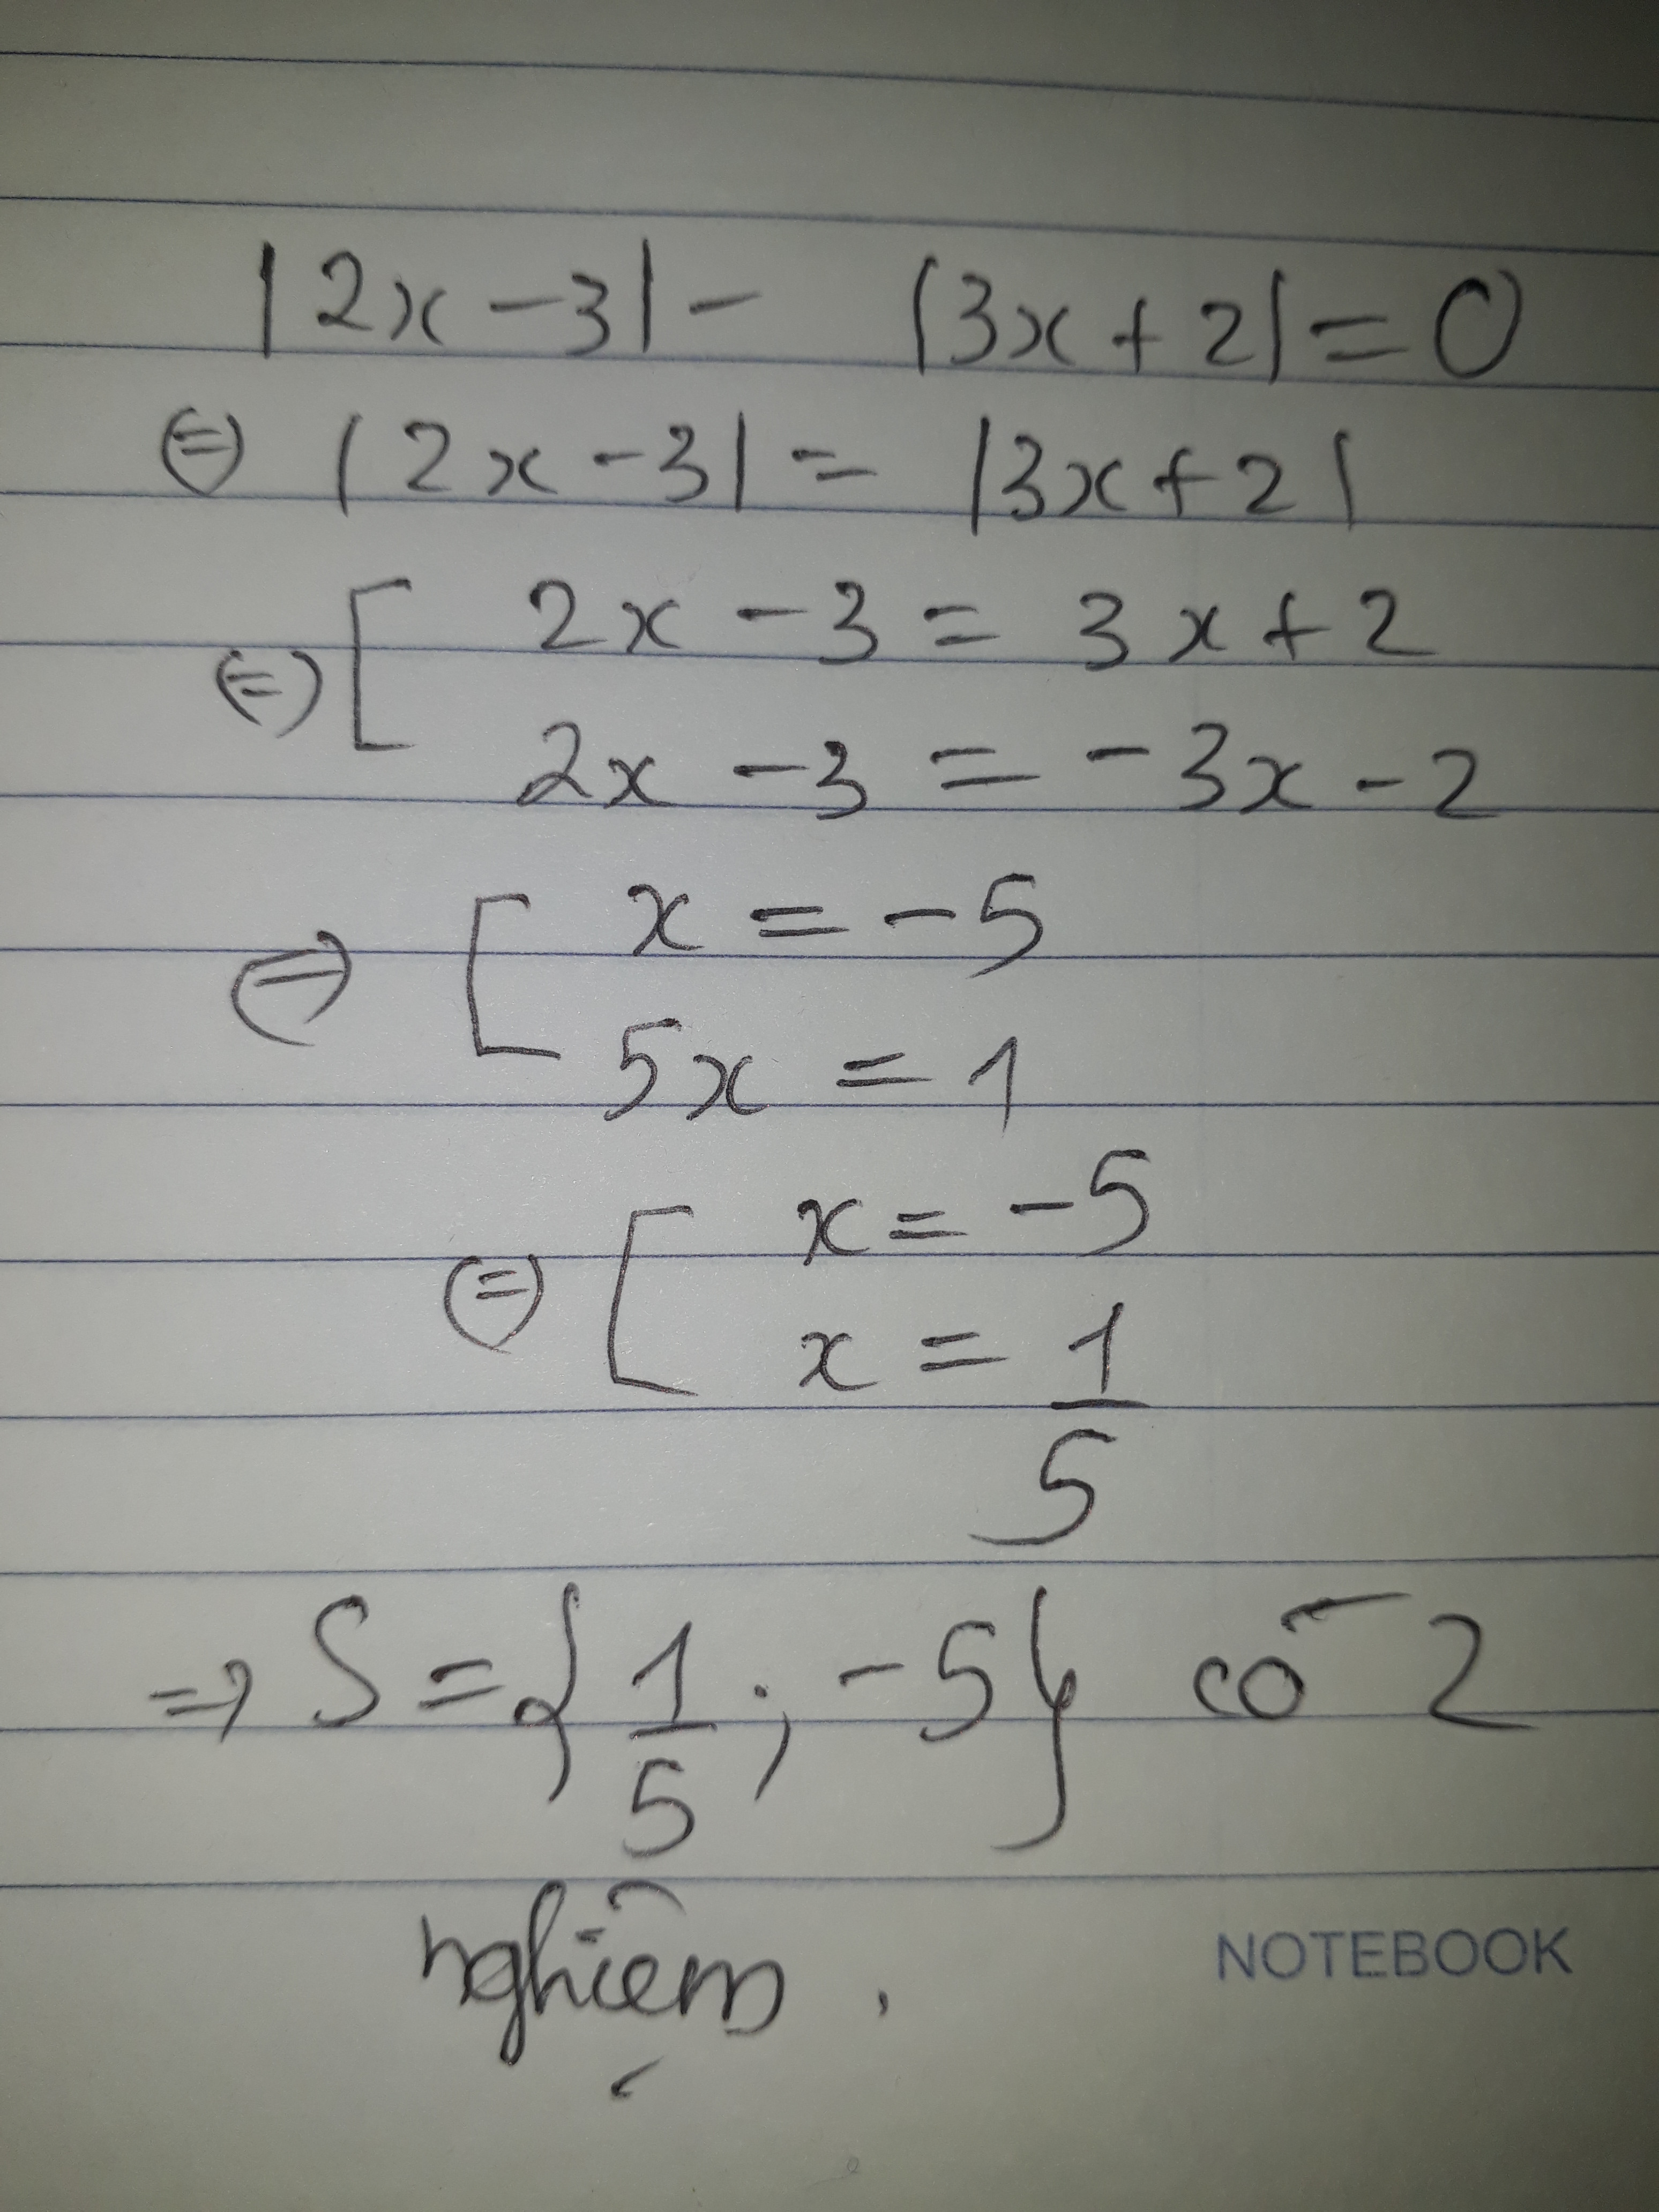 |2x - 3| - |3x + 2| = 0
⇔ |2x - 3| = |3x + 2|
⇔ [ 2x - 3 = 3x + 2
2x - 3 = -3x - 2
⇔ [ x = -5
5x = 1
⇔ [ x = -5
x = 1/5
⇒ S = {1/5 ; -5} có 2
nghiệm.
NOTEBOOK